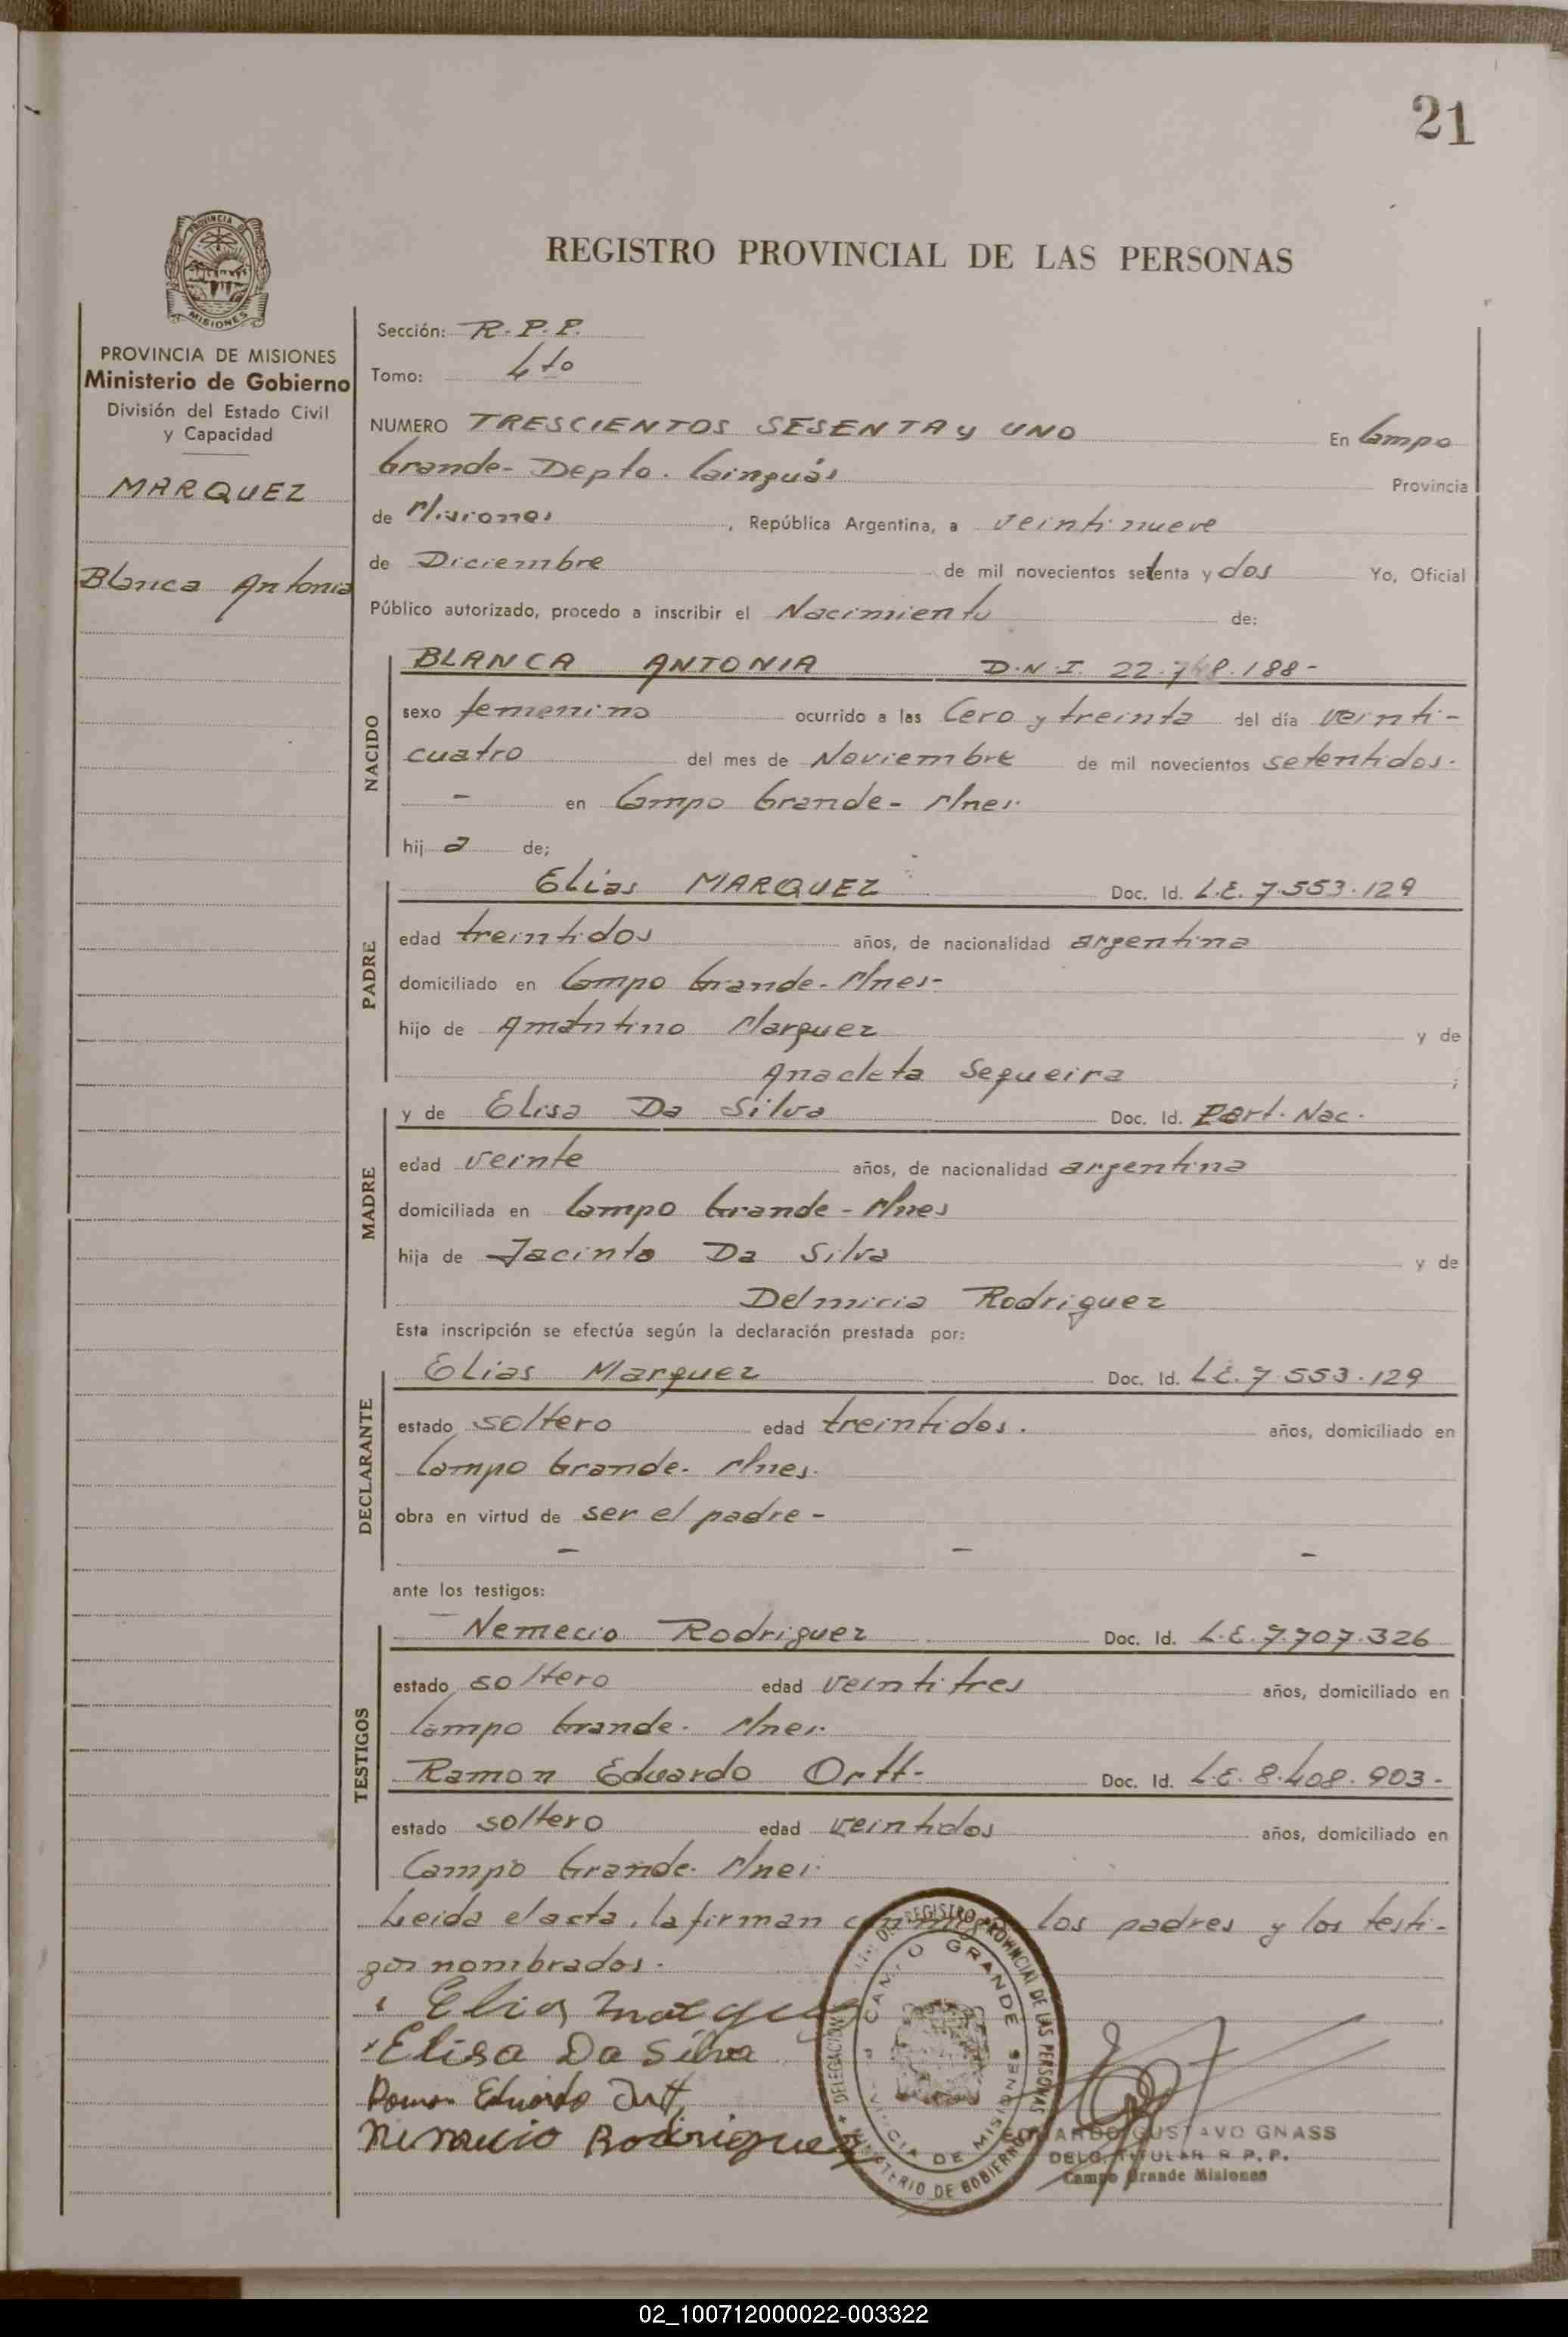 21
PROVINCIA DE
MISIONES
REGISTRO PROVINCIAL DE LAS PERSONAS
PROVINCIA DE MISIONES
Ministerio de Gobierno
División del Estado Civil
y Capacidad
MARQUEZ
Blanca Antonia
Sección: R.P.P.
Tomo: 4to
NUMERO TRESCIENTOS SESENTA y UNO En Campo
Grande - Depto. Cainguás Provincia
de Misiones, República Argentina, a veintinueve
de Diciembre de mil novecientos setenta y dos Yo, Oficial
Público autorizado, procedo a inscribir el Nacimiento de:
NACIDO
BLANCA ANTONIA D.N.I. 22.748.188-
sexo femenino ocurrido a las Cero y treinta del día veinti-
cuatro del mes de Noviembre de mil novecientos setentidos.
- en Campo Grande - Mnes.
hij a de;
PADRE
Elías MARQUEZ Doc. Id. L.E. 7.553.129
edad treintidos años, de nacionalidad argentina
domiciliado en Campo Grande - Mnes-
hijo de Amantino Marquez y de
Anacleta Sequeira ;
MADRE
y de Elisa Da Silva Doc. Id. Part. Nac.
edad veinte años, de nacionalidad argentina
domiciliada en Campo Grande - Mnes
hija de Jacinto Da Silva y de
Delmicia Rodriguez
Esta inscripción se efectúa según la declaración prestada por:
DECLARANTE
Elias Marquez Doc. Id. L.E. 7.553.129
estado soltero edad treintidos. años, domiciliado en
Campo Grande. Mnes.
obra en virtud de ser el padre -
- - -
ante los testigos:
TESTIGOS
Nemecio Rodriguez Doc. Id. L.E. 7.707.326
estado soltero edad veintitres años, domiciliado en
Campo Grande. Mnes.
Ramon Eduardo Ortt- Doc. Id. L.E. 8.408.903-
estado soltero edad veintidos años, domiciliado en
Campo Grande. Mnes.
Leida el acta, la firman los padres y los testi-
gos nombrados.
Elias Marquez
Elisa Da Silva
Ramon Eduardo Ortt
Nemecio Rodriguez
DELEGACION REGISTRO PROVINCIAL DE LAS PERSONAS
MINISTERIO DE GOBIERNO
CAMPO GRANDE
PROVINCIA DE MISIONES
GUSTAVO GNASS
DELG. TITULAR R.P.P.
Campo Grande Misiones
02_100712000022-003322